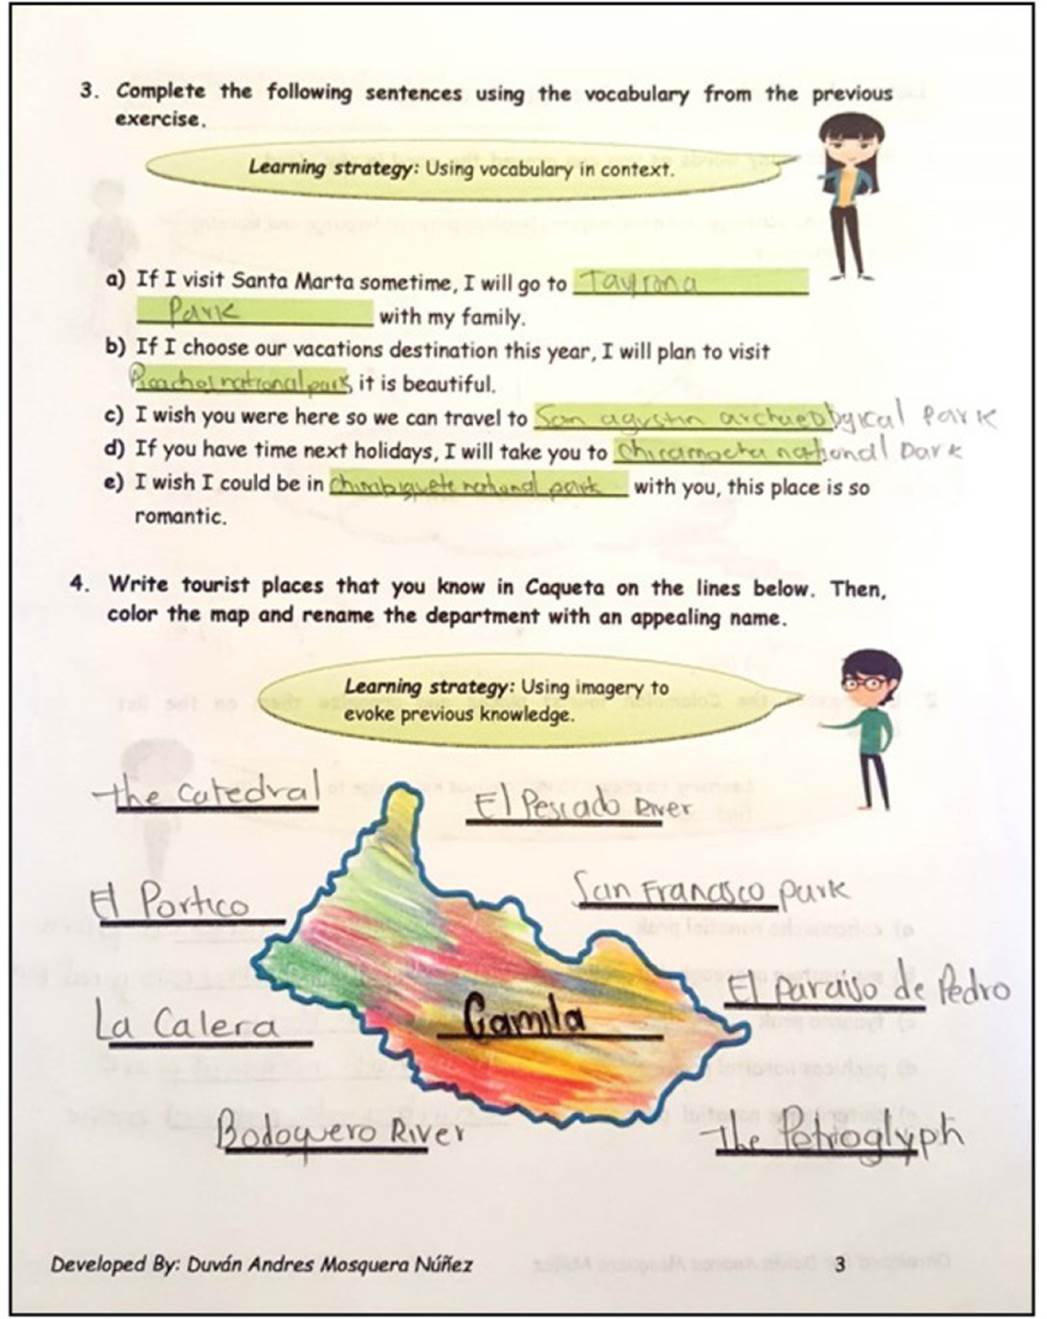 3. Complete the following sentences using the vocabulary from the previous
exercise.
Learning strategy: Using vocabulary in context.
a) If I visit Santa Marta sometime, I will go to Tayrona
Park with my family.
b) If I choose our vacations destination this year, I will plan to visit
national park, it is beautiful.
c) I wish you were here so we can travel to San agustin Park
d) If you have time next holidays, I will take you to national Park
e) I wish I could be in national park with you, this place is so
romantic.
4. Write tourist places that you know in Caqueta on the lines below. Then,
color the map and rename the department with an appealing name.
Learning strategy: Using imagery to
evoke previous knowledge.
the Catedral
El Pescado River
El Portico
San Francisco park
El paraiso de Pedro
La Calera
Camila
Bodoquero River
The Petroglyph
Developed By: Duván Andres Mosquera Núñez
3